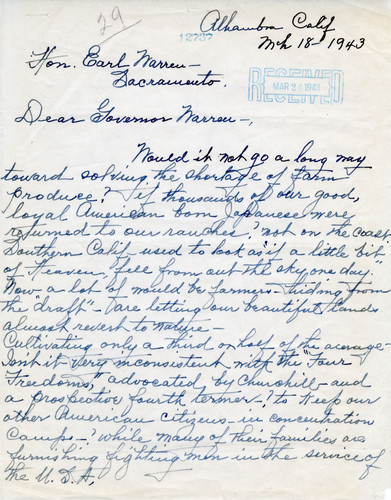 29
Alhambra Calif
12737
Mch 18-1943
Hon. Earl Warren-
Sacramento.
RECEIVED
MAR 2 1943
Dear Governor Warren-,
Would it not go a long way
toward solving the shortage of farm
produce? if thousands of our good,
loyal American born Japanese were
returned to our ranches? not on the coast.
Southern Calif- used to look as "if a little bit
of Heaven," fell from out the sky, one day.
Now a lot of would be farmers- hiding from
the "draft"- are letting our beautiful lands
almost revert to nature-
Cultivating only a third or half of the acreage-
Isn't it very inconsistent with the "Four
Freedoms," advocated, by Churchill- and
a prospective fourth termer-? to keep our
other American citizens- in concentration
Camps-? while many of their families are
furnishing fighting men in the service of
the U.S.A.